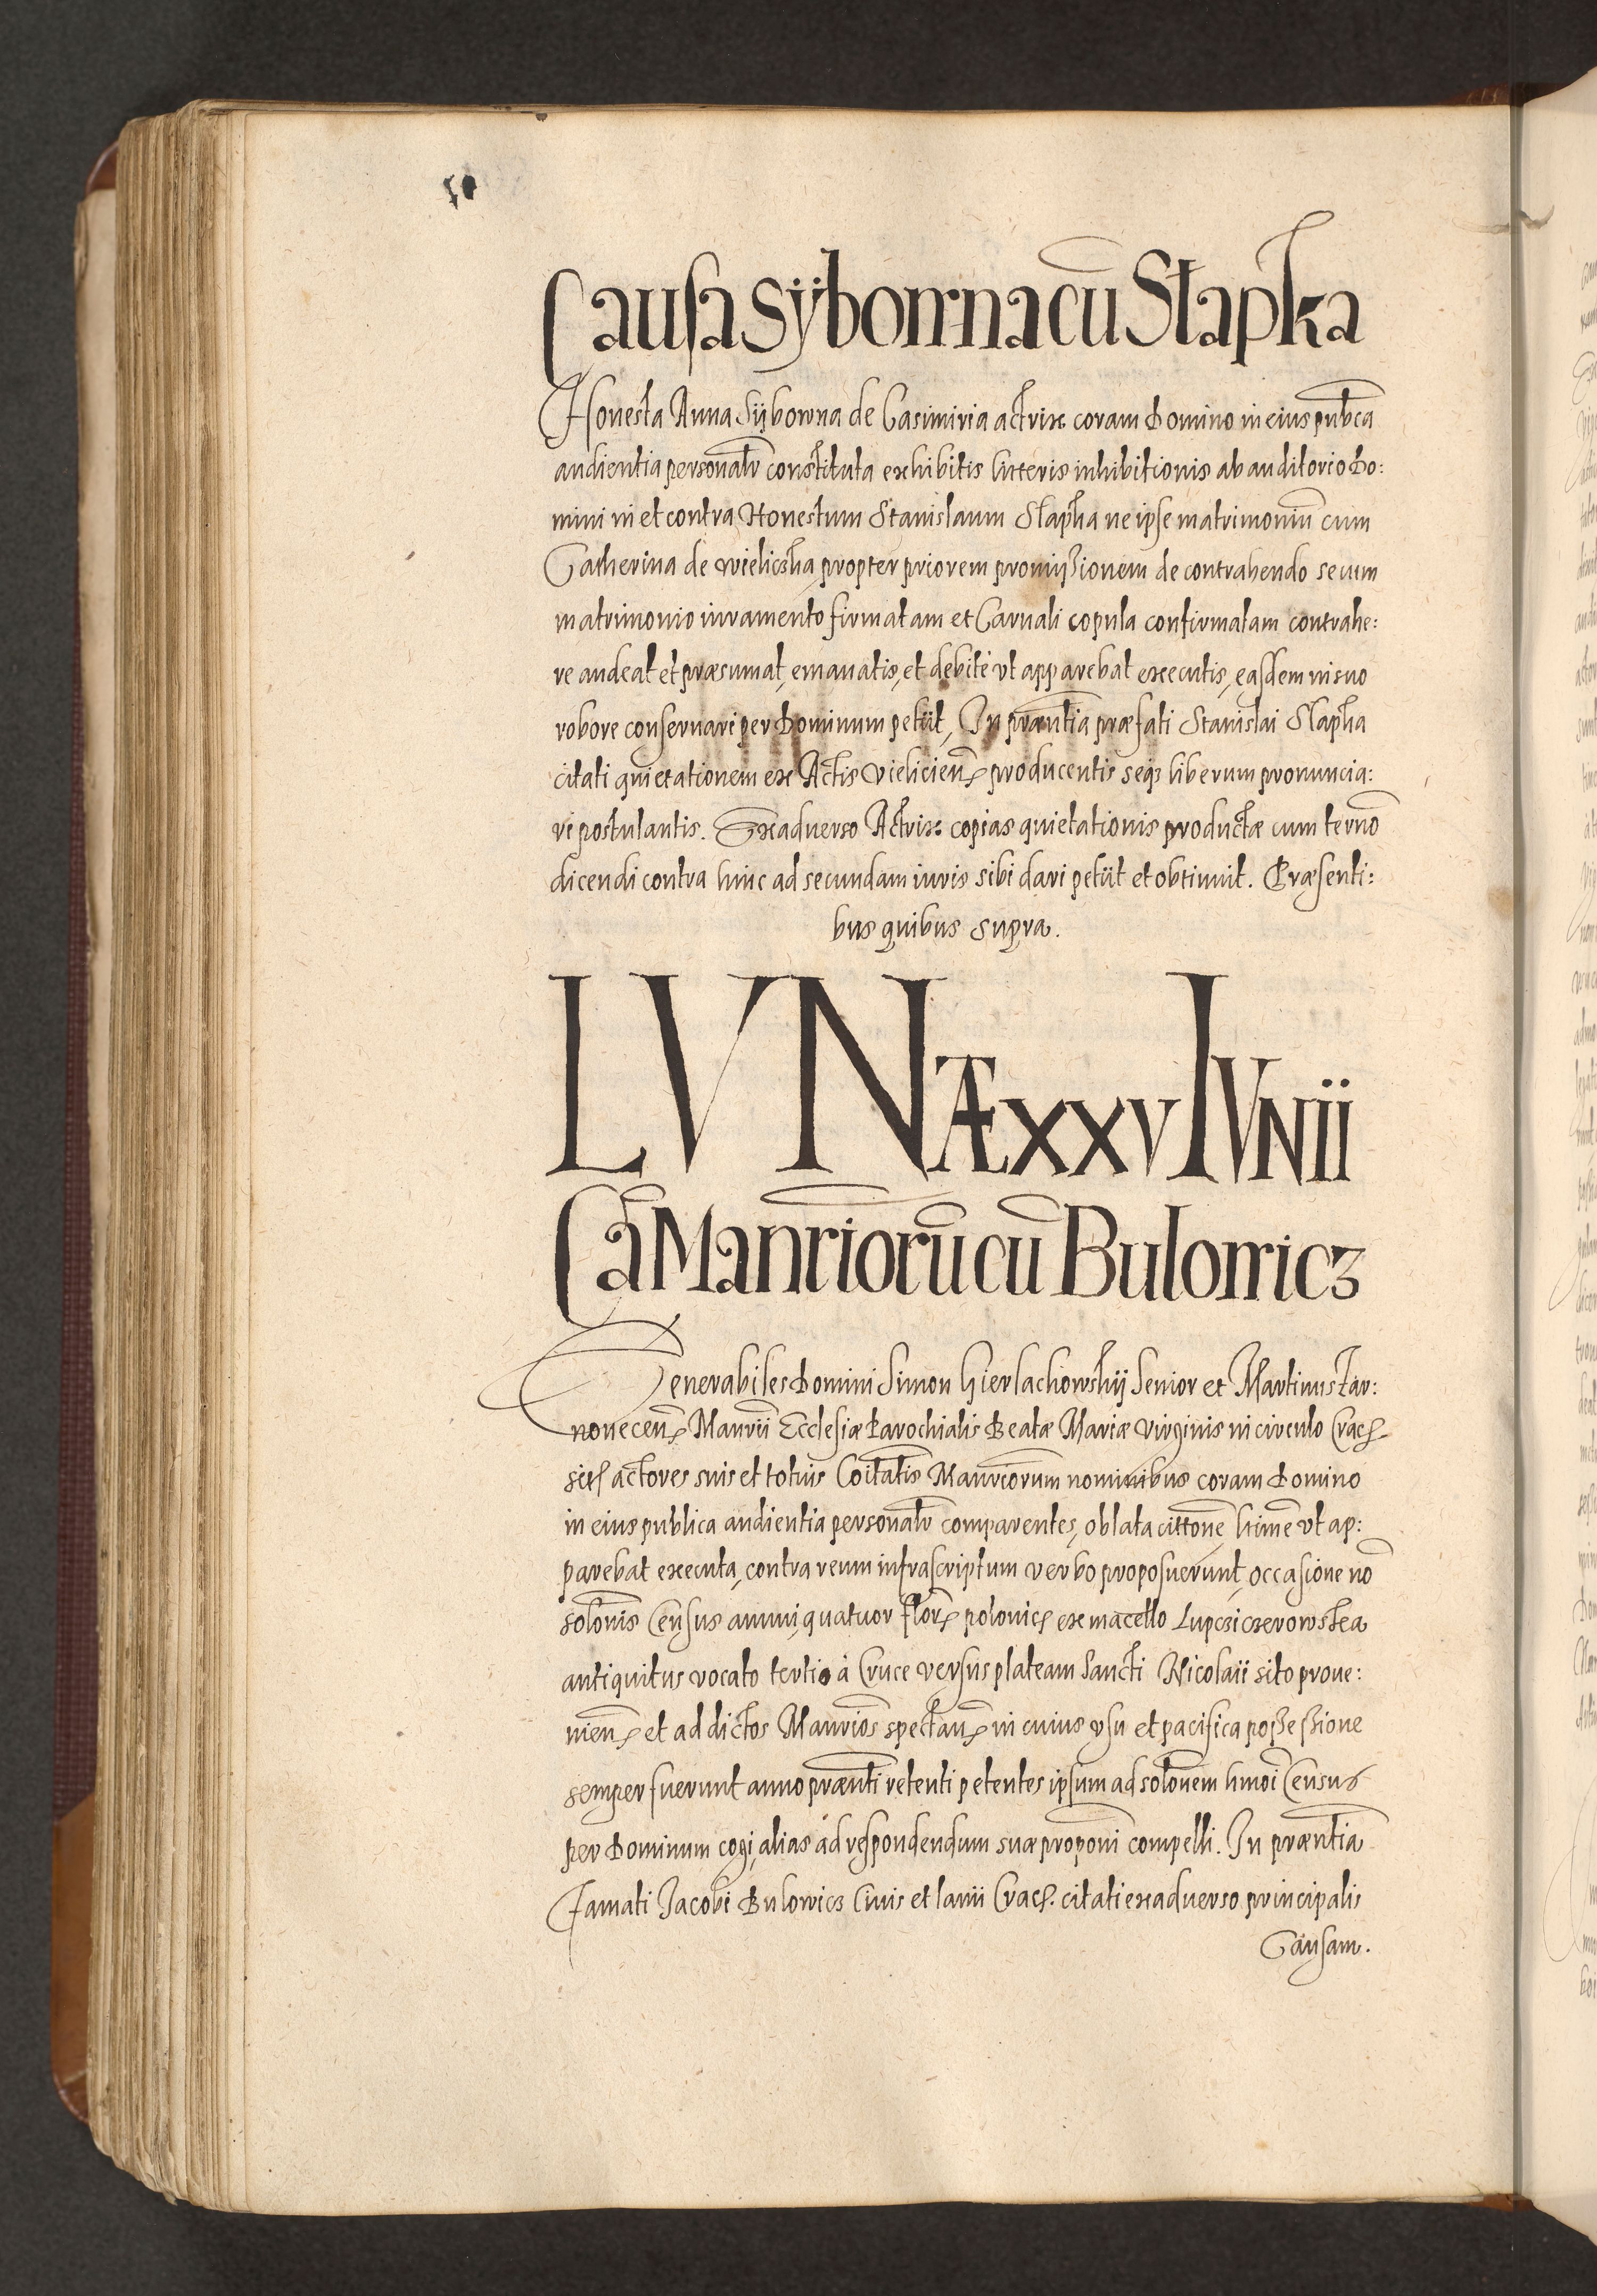 Causa Sÿbowna cū Stapka
Honesta Anna Sÿbowna de Casimiria actrix coram Domino in eius publca
audientia personalr constituta exhibitis litteris inhibitionis ab auditorio Do:
mini in et contra Honestum Stanislaum Stapka ne ipse matrimoniū cum
Catherina de Wieliczka propter priorem promißionem de contrahendo secum
matrimonio iuramento firmatam et Carnali copula confirmatam contrahe:
re audeat et præsumat, emanatis, et debitè vt apparebat executis, easdem in suo
robore conservari per Dominum petüt, In præntia præfati Stanislai Stapka
citati quietationem ex Actis Vielicien producentis seq3 liberum pronuncia:
ri postulantis. Exadverso Actrix copias quietationis productæ cum termō
dicendi contra hinc ad secundam iuris sibi dari petüt et obtinuit. Præsenti:
bus quibus supra.
LVNÆ XXV IVNII
Cā Manriorū cū Bulowicz
Venerabiles Domini Simon Gierlachowskij Senior et Martinus Tar:
novecen Manrii Ecclesiæ Parochialis Beatæ Mariæ Virginis in circulo Crac
siti actores suis et totius Coitatis Manriorum nominibus coram Domino
in eius publica audientia personalr comparentes, oblata cittone ltime vt ap:
parebat executa, contra reum infrascriptum verbo proposuerunt, occasione nō
solonis Census annui quatuor flor polonic ex macello Lupcziczerowska
antiquitus vocato tertio à Cruce versus plateam Sancti Nicolaii sito prove:
nien et ad dictos Manrios spectan in cuius vsu et pacifica poßeßione
semper fuerunt anno prænti retenti petentes ipsum ad solonem hmoi Census
per Dominum cogi, alias ad respondendum suæ proponi compelli. In præntia
Famati Jacobi Bulowicz Civis et lanii Crac. citati exadverso principalis
Causam.